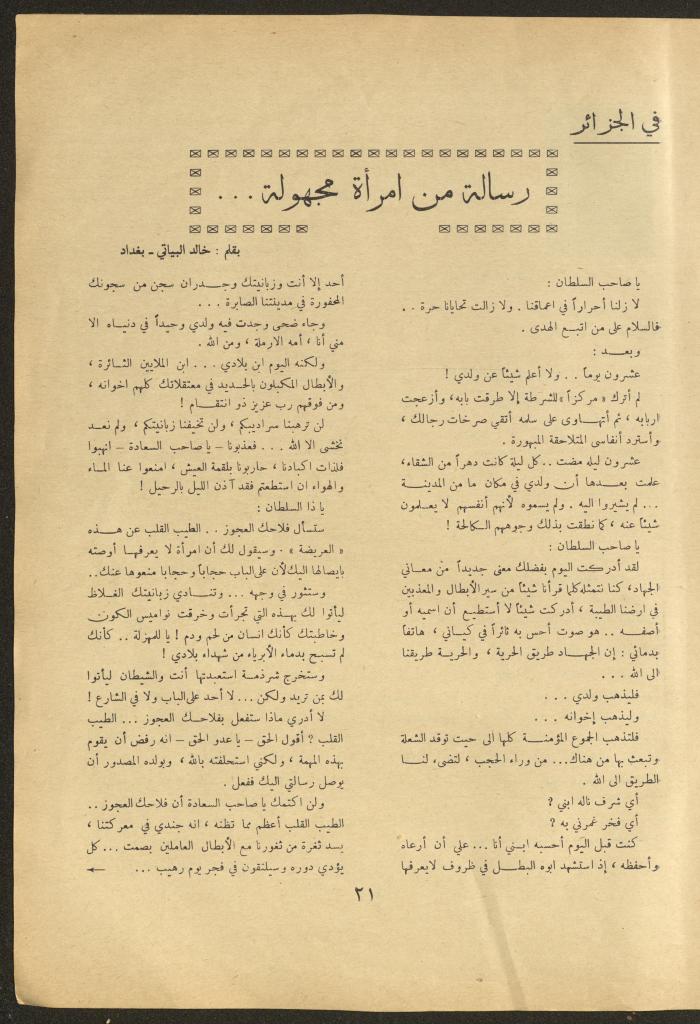 في الجزائر
رسالة من امرأة مجهولة ...
بقلم : خالد البياتي ـ بغداد
يا صاحب السلطان :
لا زلنا أحراراً في اعماقنا . ولا زالت تحايانا حرة . .
فالسلام على من اتبع الهدى .
وبعد :
عشرون يوماً . . ولا أعلم شيئاً عن ولدي !
لم أترك « مركزاً » للشرطة إلا طرقت بابه، وأزعجت
اربابه ، ثم أتهاوى على سلمه أتقي صرخات رجالك ،
وأسترد أنفاسي المتلاحقة المبهورة .
عشرون ليله مضت .. كل ليلة كانت دهراً من الشقاء،
علمت بعدها أن ولدي في مكان ما من المدينة
... لم يشيروا اليه . ولم يسموه لأنهم أنفسهم لا يعلمون
شيئاً عنه ، كما نطقت بذلك وجوههم الكالحة !
يا صاحب السلطان :
لقد أدركت اليوم بفضلك معنى جديداً من معاني
الجهاد، كنا نتمثله كلما قرأنا شيئاً من سير الأبطال والمعذبين
في ارضنا الطيبة ، أدركت شيئاً لا أستطيع أن اسميه أو
أصفه .. هو صوت أحس به ثائراً في كياني ، هاتفاً
بدمائي : إن الجهاد طريق الحرية ، والحرية طريقنا
الى الله ...
فليذهب ولدي ...
وليذهب إخوانه ...
فلتذهب الجموع المؤمنة كلها الى حيث توقد الشعلة
وتبعث بها من هناك... من وراء الحجب ، لتضيء لنا
الطريق الى الله .
أي شرف ناله ابني ؟
أي فخر غمرني به ؟
كنت قبل اليوم أحسبه ابني أنا ... علي أن أرعاه
وأحفظه ، إذ استشهد ابوه البطل في ظروف لايعرفها
أحد إلا أنت وزبانيتك وجدران سجن من سجونك
المحفورة في مدينتنا الصابرة ...
وجاء ضحى وجدت فيه ولدي وحيداً في دنياه الا
مني أنا ، أمه الارملة ، ومن الله .
ولكنه اليوم ابن بلادي ... ابن الملايين الثائرة ،
والأبطال المكبلون بالحديد في معتقلاتك كلهم اخوانه ،
ومن فوقهم رب عزيز ذو انتقام !
لن ترهبنا سراديبكم ، ولن تخيفنا زبانيتكم ، ولم نعد
نخشى الا الله ... فعذبونا – يا صاحب السعادة – انهبوا
فلذات اكبادنا ، حاربونا بلقمة العيش ، امنعوا عنا الماء
والهواء ان استطعتم فقد آذن الليل بالرحيل !
يا ذا السلطان :
ستسأل فلاحك العجوز .. الطيب القلب عن هذه
« العريضة » . وسيقول لك أن امرأة لا يعرفها أوصته
بايصالها اليك لأن على الباب حجاباً وحجابا منعوها عنك..
وستثور في وجهه ... وتنادي زبانيتك الغلاظ
ليأتوا لك بهذه التي تجرأت وخرقت نواميس الكون
وخاطبتك كأنك انسان من لحم ودم ! يا للمهزلة .. كأنك
لم تسبح بدماء الأبرياء من شهداء بلادي !
وستخرج شرذمة استعبدتها أنت والشيطان ليأتوا
لك بمن تريد ولكن ... لا أحد على الباب ولا في الشارع !
لا أدري ماذا ستفعل بفلاحك العجوز ... الطيب
القلب ؟ أقول الحق – يا عدو الحق – انه رفض أن يقوم
بهذه المهمة ، ولكني استحلفته بالله ، وبولده المصدور أن
يوصل رسالتي اليك ففعل .
ولن اكتمك يا صاحب السعادة أن فلاحك العجوز ..
الطيب القلب أعظم مما تظنه ، انه جندي في معركتنا ،
يسد ثغرة من ثغورنا مع الأبطال العاملين بصمت ... كل
يؤدي دوره وسيلتقون في فجر يوم رهيب ... ←
٢١